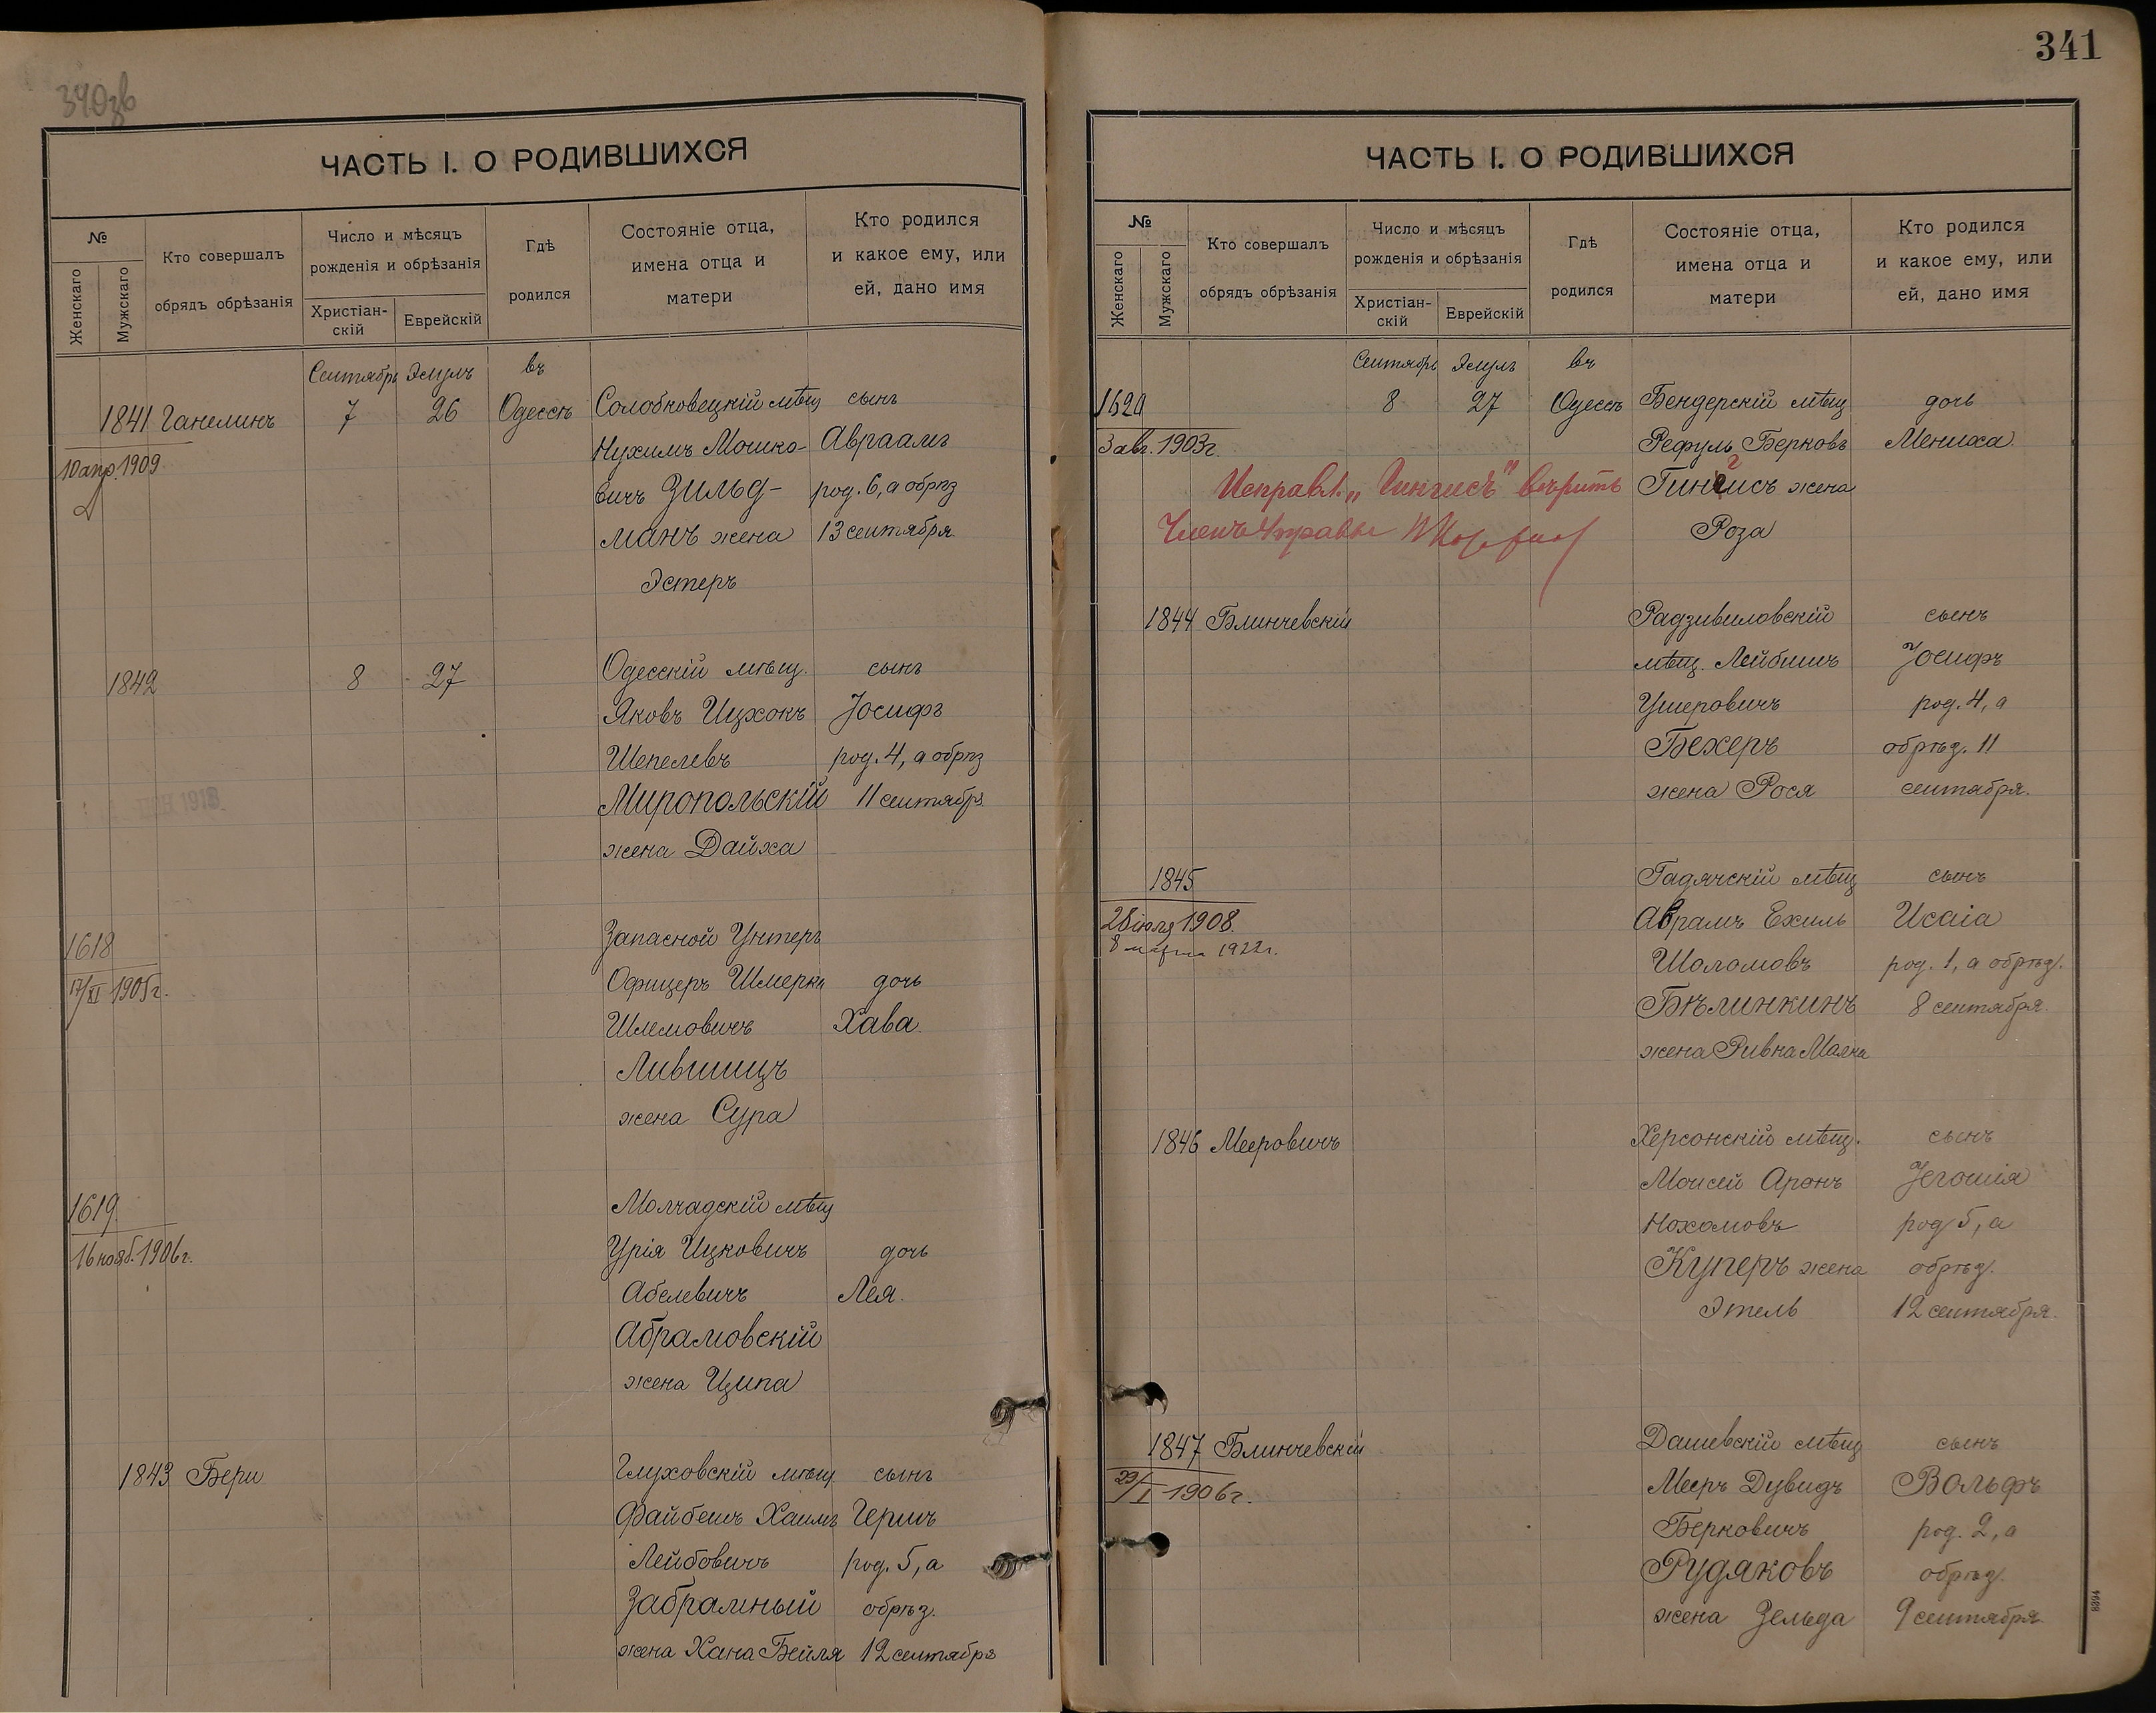 340зв
ЧАСТЬ I. О РОДИВШИХСЯ
№
Женскаго
Мужскаго
Кто совершалъ
обрядъ обрѣзанія
Число и мѣсяцъ
рожденія и обрѣзанія
Христіан-
скій
Еврейскій
Гдѣ
родился
Состояніе отца,
имена отца и
матери
Кто родился
и какое ему, или
ей, дано имя
Сентябрь Элулъ въ
1841 Ганелинъ 7 26 Одессѣ Солобковецкій мѣщ сынъ
10 апр. 1909 Нухимъ Мошко- Авраамъ
вичъ Зильд- род. 6, а обрѣз
манъ жена 13 сентября.
Эстеръ
1842 8 27 Одесскій мѣщ. сынъ
Яковъ Ицхокъ Іосифъ
Шепелевъ род. 4, а обрѣз
Миропольскій 11 сентября
жена Дайха
1618 Запасной Унтеръ
17/XI 1905г. Офицеръ Шмерка дочь
Шлемовичъ Хава.
Лившицъ
жена Сура
1619 Молчадскій мѣщ
16 нояб. 1906г. Урія Ицковичъ дочь
Абелевичъ Лея.
Абрамовскій
жена Ципа
1843 Бери Глуховскій мѣщ сынъ
Файбешъ Хаимъ Гершъ
Лейбовичъ род. 5, а
Забрамный обрѣз.
жена Хана Бейля 12 сентября
341
ЧАСТЬ I. О РОДИВШИХСЯ
№
Женскаго
Мужскаго
Кто совершалъ
обрядъ обрѣзанія
Число и мѣсяцъ
рожденія и обрѣзанія
Христіан-
скій
Еврейскій
Гдѣ
родился
Состояніе отца,
имена отца и
матери
Кто родился
и какое ему, или
ей, дано имя
Сентябрь Элулъ въ
1620 8 27 Одессѣ Бендерскій мѣщ дочь
3 авг. 1903г. Рефуль Берковъ Мениха.
Исправл. „Гингисъ" вѣрить Гингисъ жена
Членъ Управы Роза
1844 Блинчевскій Радзивиловскій сынъ
мѣщ. Лейбишъ Іосифъ
Ушеровичъ род. 4, а
Бехеръ обрѣз. 11
жена Рося сентября.
1845 Гадячскій мѣщ сынъ
28 іюля 1908. Аврамъ Ехиль Исаія
8 марта 1922г.
Шоломовъ род. 1, а обрѣз.
Бѣлинкинъ 8 сентября
жена Ривка Малка
1846 Мееровичъ Херсонскій мѣщ. сынъ
Моисей Аронъ Іегошія
Нохомовъ род 5, а
Куперъ жена обрѣз.
Этель 12 сентября.
1847 Блинчевскій Дашевскій мѣщ сынъ
29/I 1906г. Мееръ Дувидъ Вольфъ
Берковичъ род. 2, а
Рудяковъ обрѣз.
жена Зельда 9 сентября